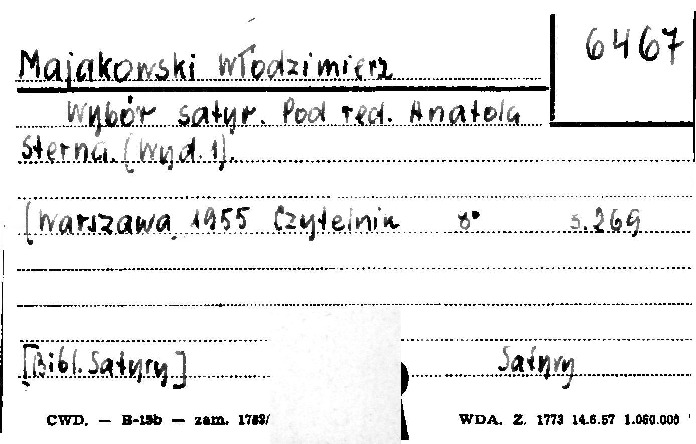 6467
Majakowski Włodzimierz
Wybór satyr. Pod red. Anatola
Sterna. (Wyd. 1).
[Warszawa 1955 Czytelnik 8° s. 269
[Bibl. Satyry]
Satyry
CWD. — B-15b — zam. 1753/
WDA. Z. 1773 14.6.57 1.060.000